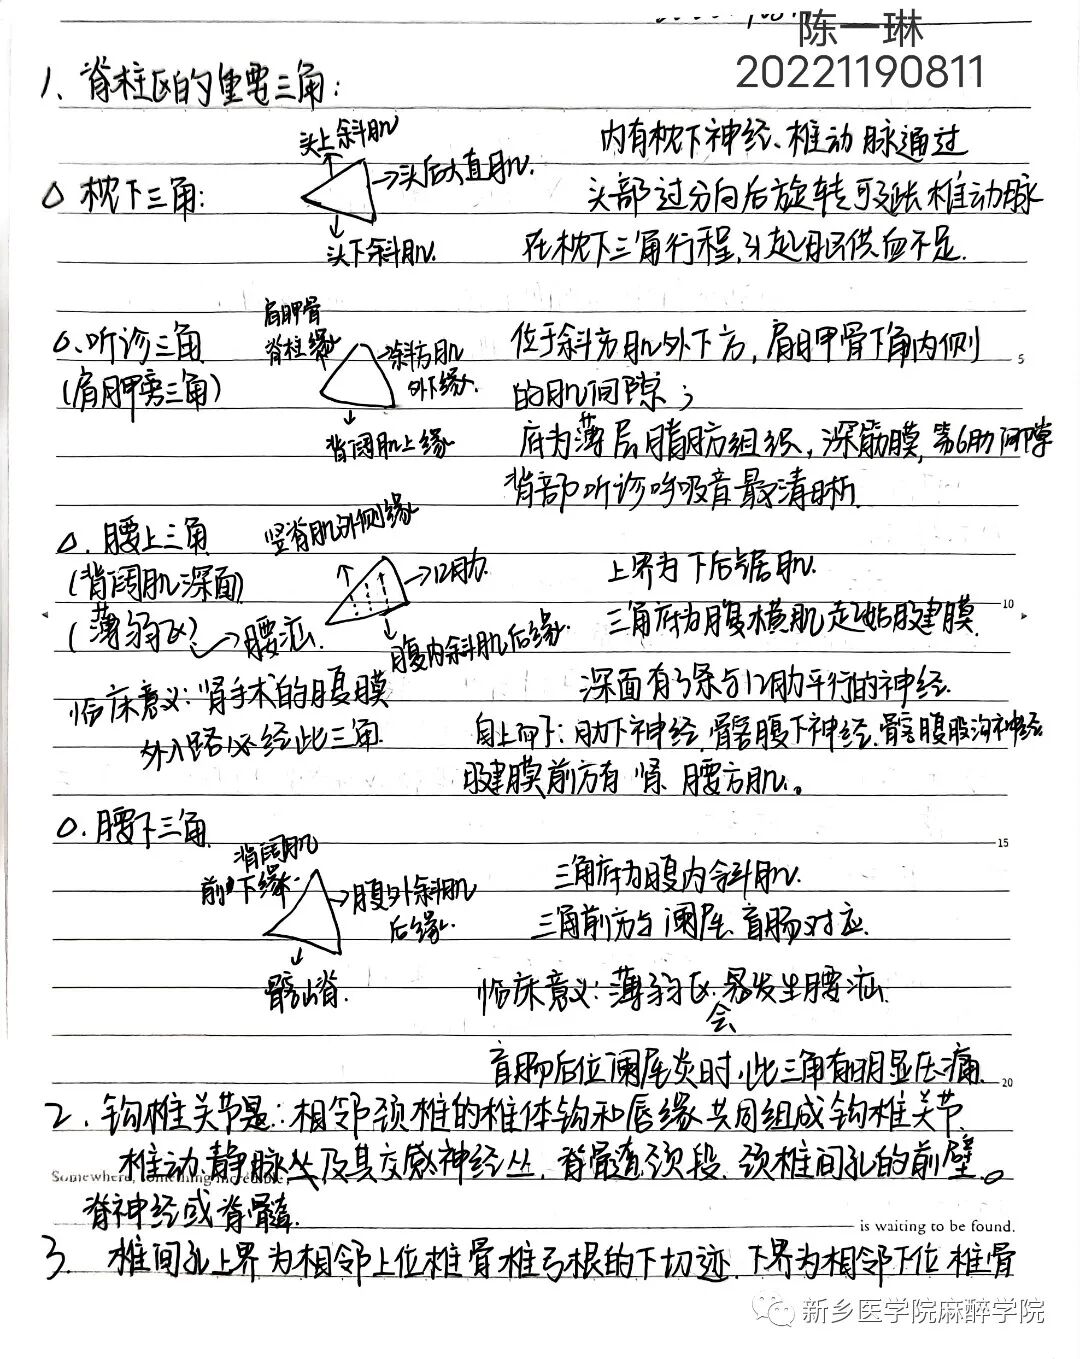 陈一琳
20221190811
1、脊柱区的重要三角:
头上斜肌
内有枕下神经、椎动脉通过
枕下三角:
头后大直肌
头部过分向后旋转可延长椎动脉
头下斜肌
在枕下三角行程,引起脑供血不足.
肩胛骨
脊柱缘
听诊三角
斜方肌
外下缘
位于斜方肌外下方,肩胛骨下角内侧
(肩胛旁三角)
的肌间隙;
背阔肌上缘
底为薄层脂肪组织,深筋膜,第6肋间隙
背部听诊呼吸音最清晰.
竖脊肌外侧缘
腰上三角
(背阔肌深面)
12肋
上界为下后锯肌
(薄弱区)→腰疝
腹内斜肌后缘
三角底为腹横肌起始腱膜
临床意义:肾手术的腹膜
深面有3条与12肋平行的神经
外入路必经此三角
自上而下:肋下神经.髂腹下神经.髂腹股沟神经
腱膜前方有肾 腰方肌。
腰下三角
背阔肌
前下缘
三角底为腹内斜肌
腹外斜肌
后缘
三角前方与阑尾 盲肠对应
髂嵴
临床意义:薄弱区.易发生腰疝
会
盲肠后位阑尾炎时,此三角有明显压痛
2、钩椎关节是:相邻颈椎的椎体钩和唇缘共同组成钩椎关节
椎动静脉丛及其交感神经丛,脊髓颈段.颈椎间孔的前壁。
Somewhere, something incredible
脊神经或脊髓
is waiting to be found.
3、椎间孔上界为相邻上位椎骨椎弓根的下切迹.下界为相邻下位椎骨
新乡医学院麻醉学院
5
10
15
20